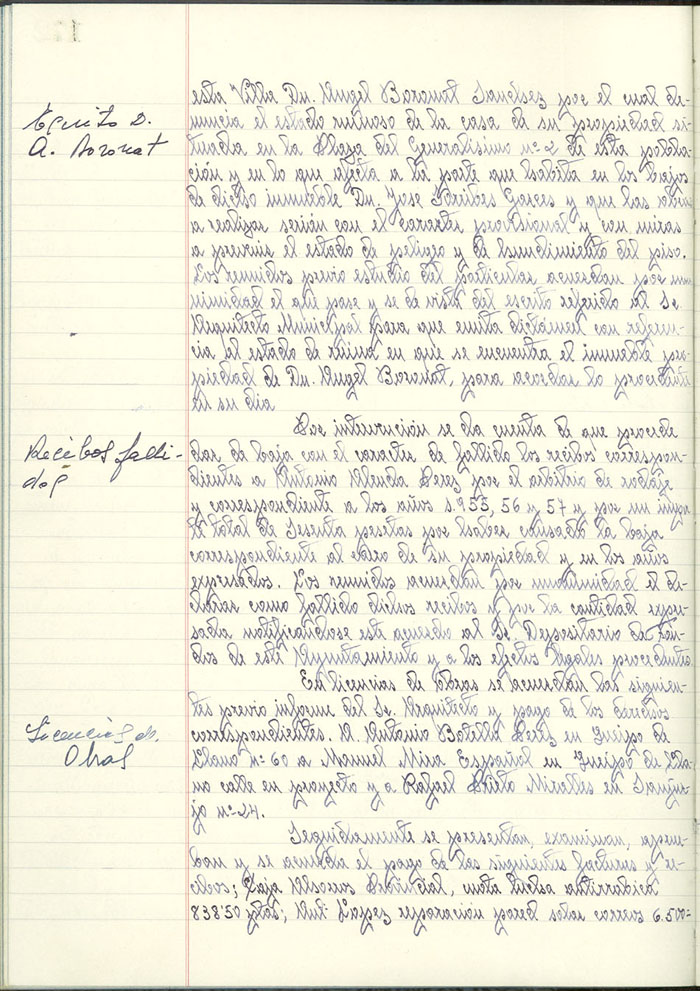 esta Villa Dn. Angel Boronat Sanchez por el cual de-
nuncia el estado ruinoso de la casa de su propiedad si-
tuada en la Plaza del Generalisimo nº 2 de esta pobla-
ción y en lo que afecta a la parte que habita en los bajos
de dicho inmueble Dn. Jose y que las obras
a realizar serian con el caracter provisional y con miras
a prevenir el estado de peligro y de hundimiento del piso.
Los reunidos previo estudio del particular, acuerdan por una
nimidad el que pase y se de vista del escrito referido al Sr.
Arquitecto Municipal para que emita dictámen con referen-
cia al estado de ruina en que se encuentra el inmueble pro
piedad de Dn. Angel Boronat, para acordar lo procedente
en su dia
Escrito D.
A. Boronat
Por intervención se da cuenta de que procede
dar de baja con el caracter de fallido los recibos correspon-
dientes a Antonio Perez por el arbitrio de rodaje
y correspondiente a los años 1.955, 56 y 57 y por un impor
te total de Sesenta pesetas por haber causado la baja
correspondiente al carro de su propiedad y en los años
expresados. Los reunidos acuerdan por unanimidad el de-
clarar como fallido dichos recibos y por la cantidad expre-
sada notificandose este acuerdo al Sr. Depositario de Fon-
dos de este Ayuntamiento y a los efectos legales procedentes.
Recibos falli-
dos
En licencias de obras se acuerdan las siguien-
tes previo informe del Sr. Arquitecto y pago de los derechos
correspondientes. A Antonio Botella Perez en Queipo de
Llano nº 60 a Manuel Mira Español en Queipo de Lla-
no calle en proyecto y a Rafael Prieto Miralles en Sanjur-
jo nº 24.
Licencias de
Obras
Seguidamente se presentan, examinan, aprue-
ban y se acuerda el pago de las siguientes facturas y re-
cibos; Caja Provincial, cuota lucha antirrabica
838'50 ptas; Lopez reparación pared solar correos 6.500=